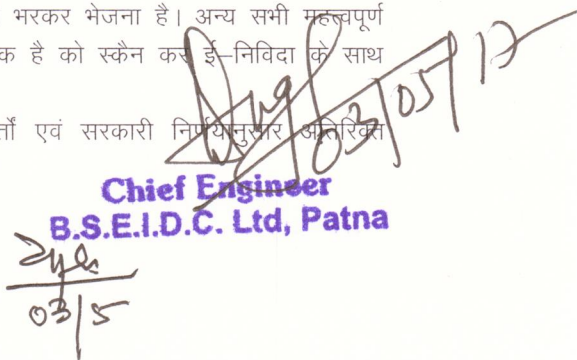 भरकर भेजना है। अन्य सभी महत्वपूर्ण
क है को स्कैन कर ई–निविदा के साथ
र्तों एवं सरकारी निर्णयानुसार अतिरिक्त
03/05/17
Chief Engineer
B.S.E.I.D.C. Ltd, Patna
03/5